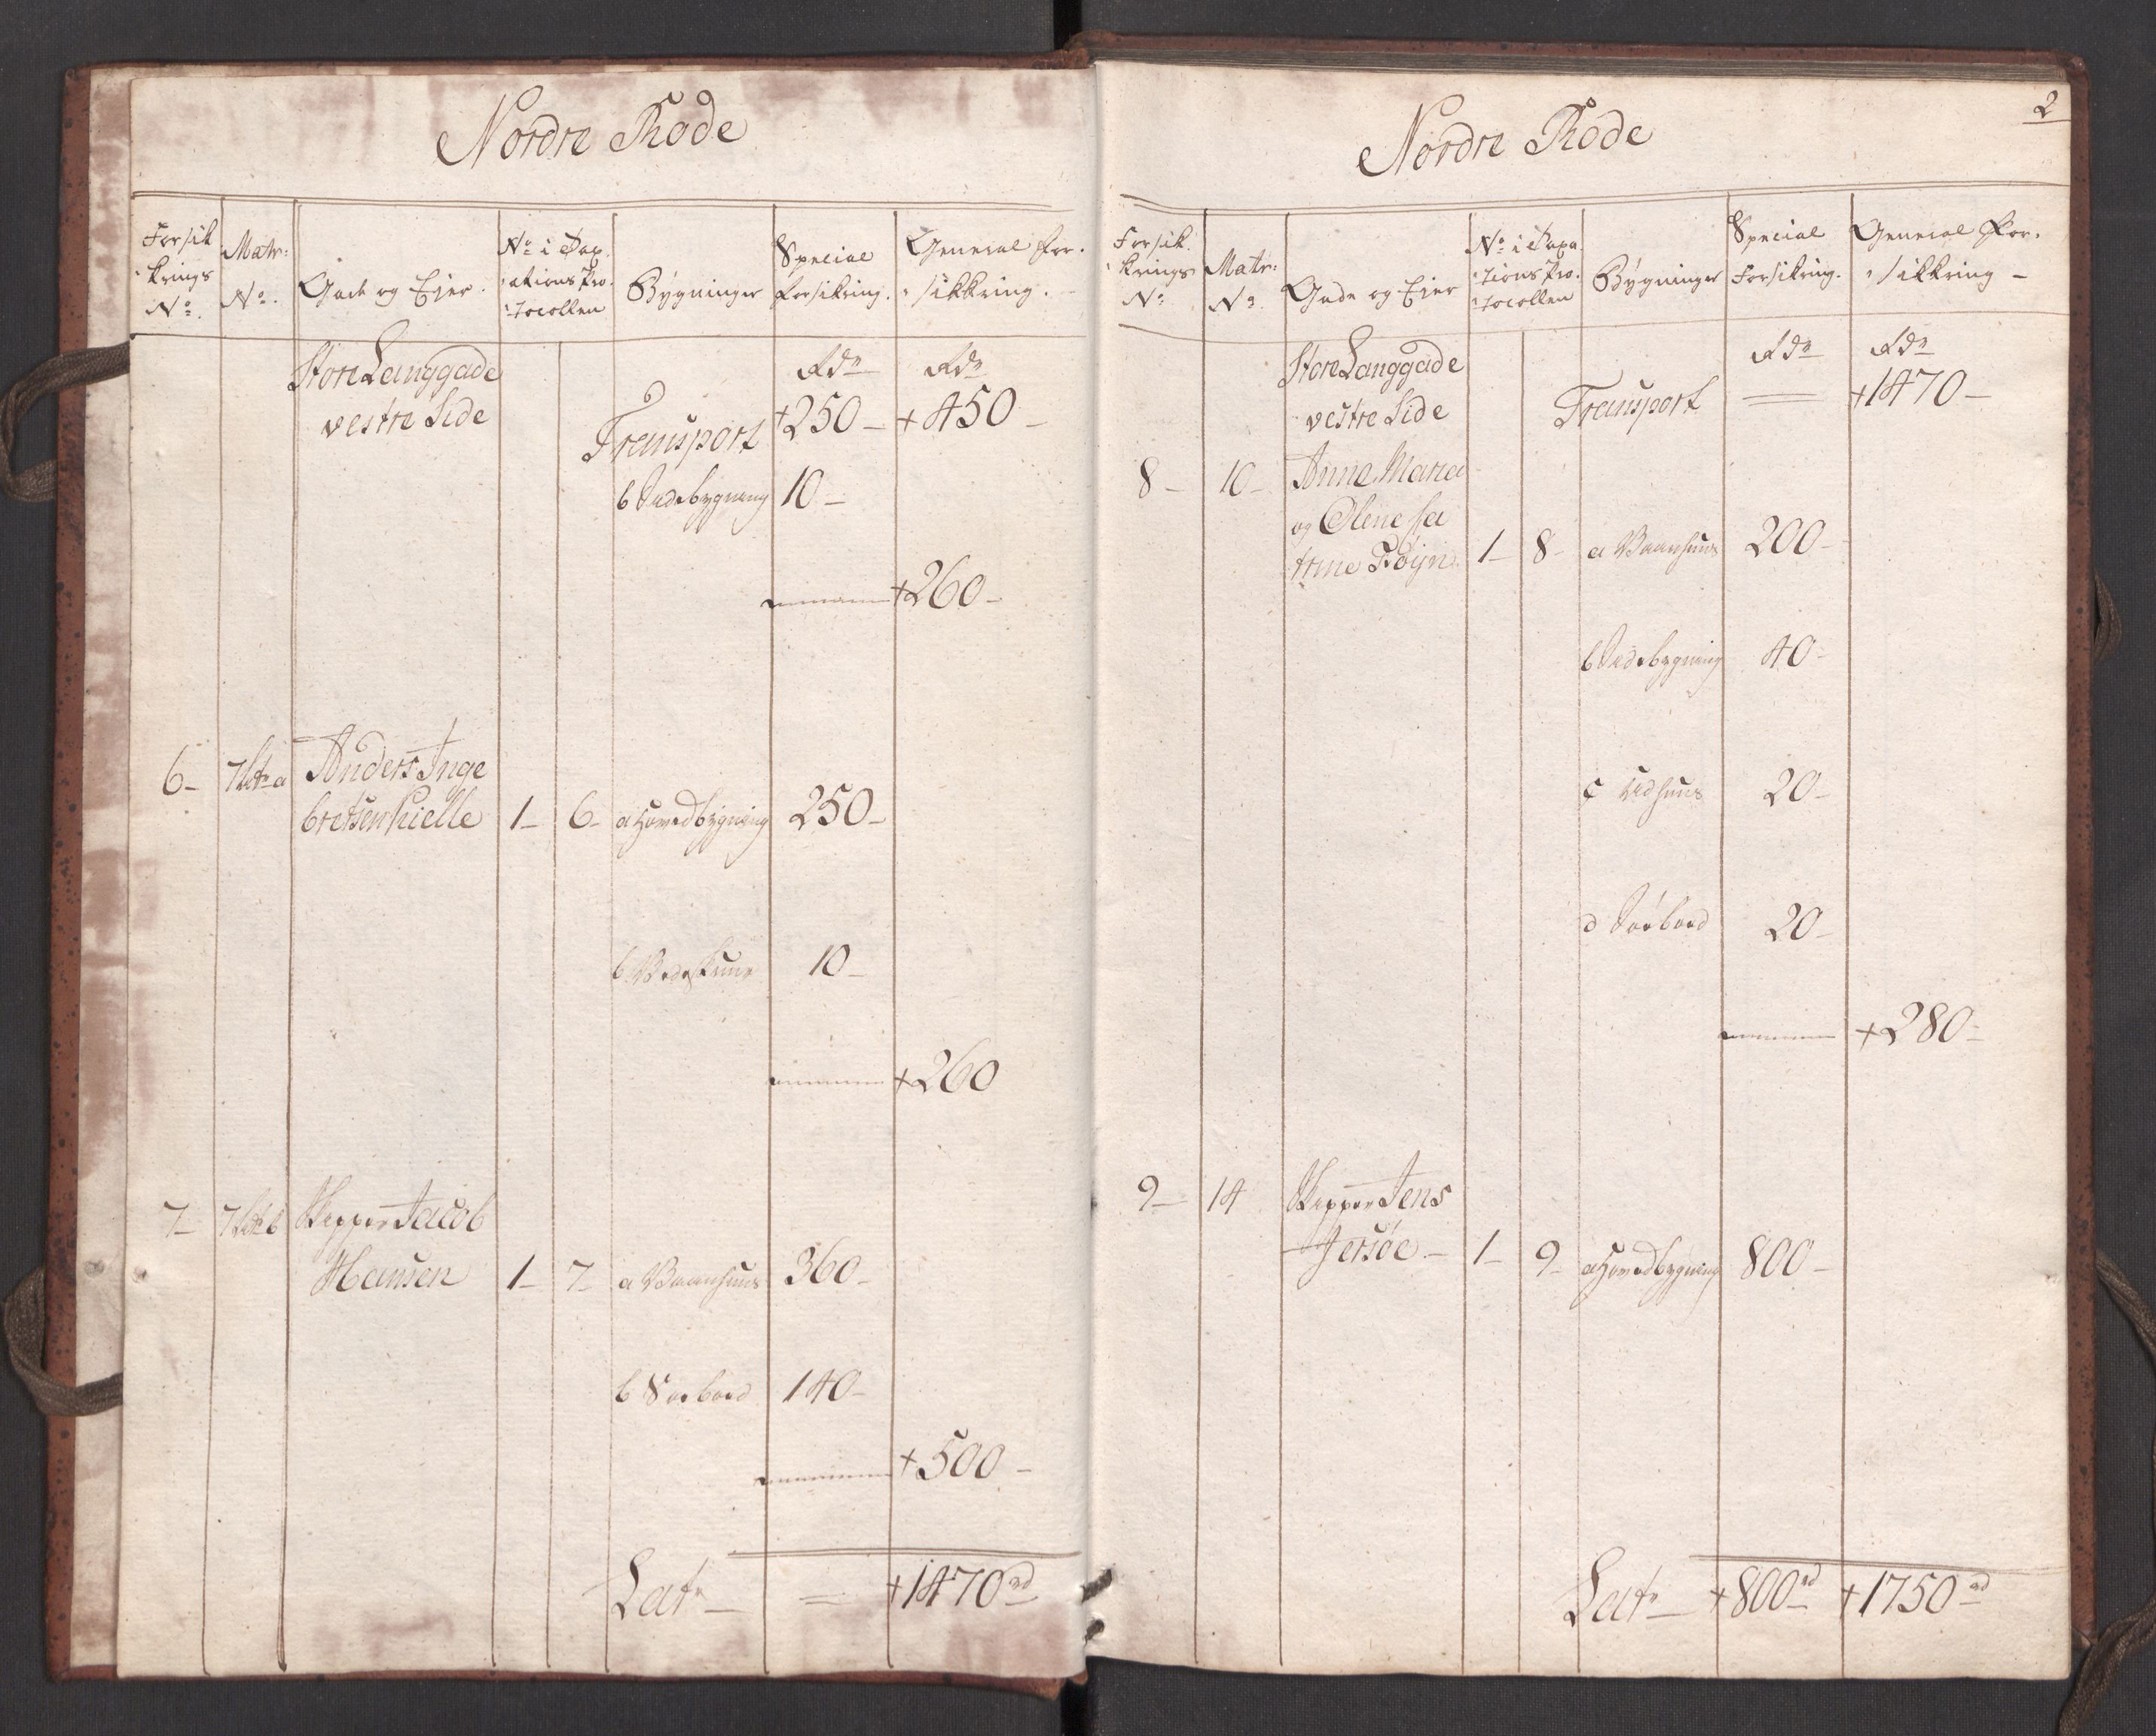 Nordre Rode
Forsik
krings
No.
Matr:
No.
Gade og Ejer.
No i Tax
ations Pro
tocollen
Bygninger
Special
Forsikring.
General For
sikkring.
Store Langgade
vestre Side
Rdr
Rdr
Transport +250 - +450 -
b Sidebygning 10 -
+260 -
6 - 7 Litr a Anders Inge
bretsen Kielle 1 - 6 - a Hovedbygning 250 -
b Vedskuur 10 -
+260
7 - 7 Litr b Skipper Jacob
Hansen 1 - 7 - a Vaanhuus 360 -
b Søebod 140 -
+500 -
Latr - +1470 rd
2
Nordre Rode
Forsik
krings
No
Matr:
No
Gade og Ejer
No i Taxa
tions Pro
tocollen
Bygninger
Special
Forsikring.
General For
sikkring -
Store Langgade
vestre Side
Rdr
Rdr
Transport +1470 -
8 - 10 - Anne Maria
og Olene
Føyn 1 - 8 - a Vaanhuus 200 -
b Sidebygning 40 -
c Udhuus 20 -
d Søebod 20 -
+280 -
9 - 14 Skipper Jens
Jersøe - 1 - 9 - a Hovedbygning 800 -
Latr - +800 rd +1750 rd